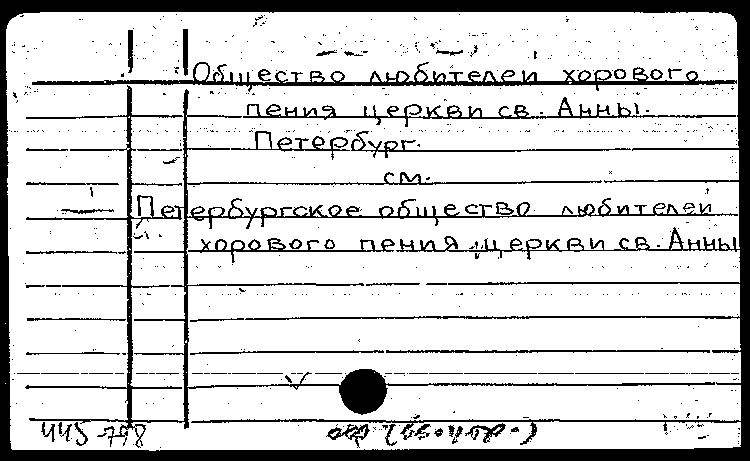 Общество любителей хорового
пения церкви св. Анны.
Петербург.
см.
Петербургское общество любителей
хорового пения церкви св. Анны
445-798